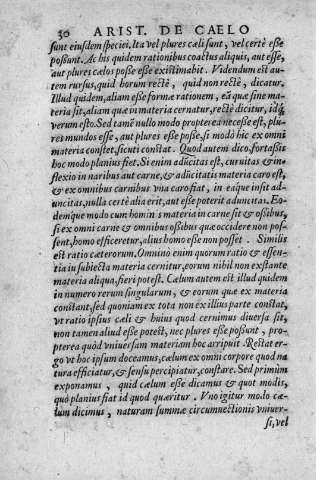 30 ARIST. DE CAELO
sunt eiusdem speciei. Ita vel plures cæli sunt, vel certè eße
poßunt. Ac his quidem rationibus coactus aliquis, aut esse,
aut plures cælos poße eße existimabit. Videndum est au-
tem rursus, quid horum rectè, quid non rectè, dicatur.
Illud quidem, aliam esse formæ rationem, ea quæ sine ma-
teria sit, aliam quæ in materia cernatur, rectè dicitur, idq́
verum esto. Sed tamē nullo modo propterea neceße est, plu-
res mundos esse, aut plures eße poße, si modò hic ex omni
materia constet, sicuti constat. Quod autem dico, fortaßis
hoc modo planius fiet. Si enim aducitas est, curuitas & in-
flexio in naribus aut carne, & aducitatis materia caro est,
& ex omnibus carnibus vna caro fiat, in eaque insit ad-
uncitas, nulla certè alia erit, aut esse poterit aduncitas. Eo-
demque modo cum hominis materia in carne sit & oßibus,
si ex omni carne & omnibus oßibus quæ occidere non pos-
sent, homo efficeretur, alius homo esse non posset. Similis
est ratio cæterorum. Omnino enim quorum ratio & essen-
tia in subiecta materia cernitur, eorum nihil non exstante
materia aliqua, fieri potest. Cælum autem est illud quidem
in numero rerum singularum, & eorum quæ ex materia
constant, sed quoniam ex tota non ex illius parte constat,
vt ratio ipsius cæli & huius quod cernimus diuersa sit,
non tamen aliud esse potest, nec plures esse poßunt, pro-
pterea quòd vniuersam materiam hoc arripuit. Restat er-
go vt hoc ipsum doceamus, cælum ex omni corpore quod na
tura efficiatur, & sensu percipiatur, constare. Sed primùm
exponamus, quid cælum eße dicamus & quot modis,
quò planius fiat id quod quæritur. Vno igitur modo cæ-
lum dicimus, naturam summæ circumuectionis vniuer-
si, vel